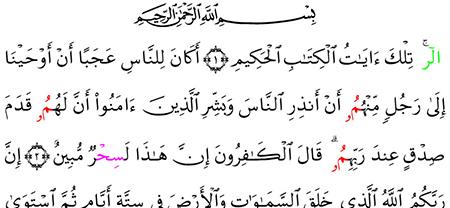 بِسْمِ ٱللَّهِ ٱلرَّحْمَٰنِ ٱلرَّحِيمِ
الٓر ۚ تِلْكَ ءَايَٰتُ ٱلْكِتَٰبِ ٱلْحَكِيمِ ﴿١﴾ أَكَانَ لِلنَّاسِ عَجَبًا أَنْ أَوْحَيْنَا
إِلَىٰ رَجُلٍ مِّنْهُمُۥ أَنْ أَنذِرِ ٱلنَّاسَ وَبَشِّرِ ٱلَّذِينَ ءَامَنُوٓا۟ أَنَّ لَهُمُۥ قَدَمَ
صِدْقٍ عِندَ رَبِّهِمُۥ ۗ قَالَ ٱلْكَٰفِرُونَ إِنَّ هَٰذَا لَسِحْرٌ مُّبِينٌ ﴿٢﴾ إِنَّ
رَبَّكُمُ ٱللَّهُ ٱلَّذِي خَلَقَ ٱلسَّمَٰوَٰتِ وَٱلْأَرْضَ فِي سِتَّةِ أَيَّامٍ ثُمَّ ٱسْتَوَىٰ